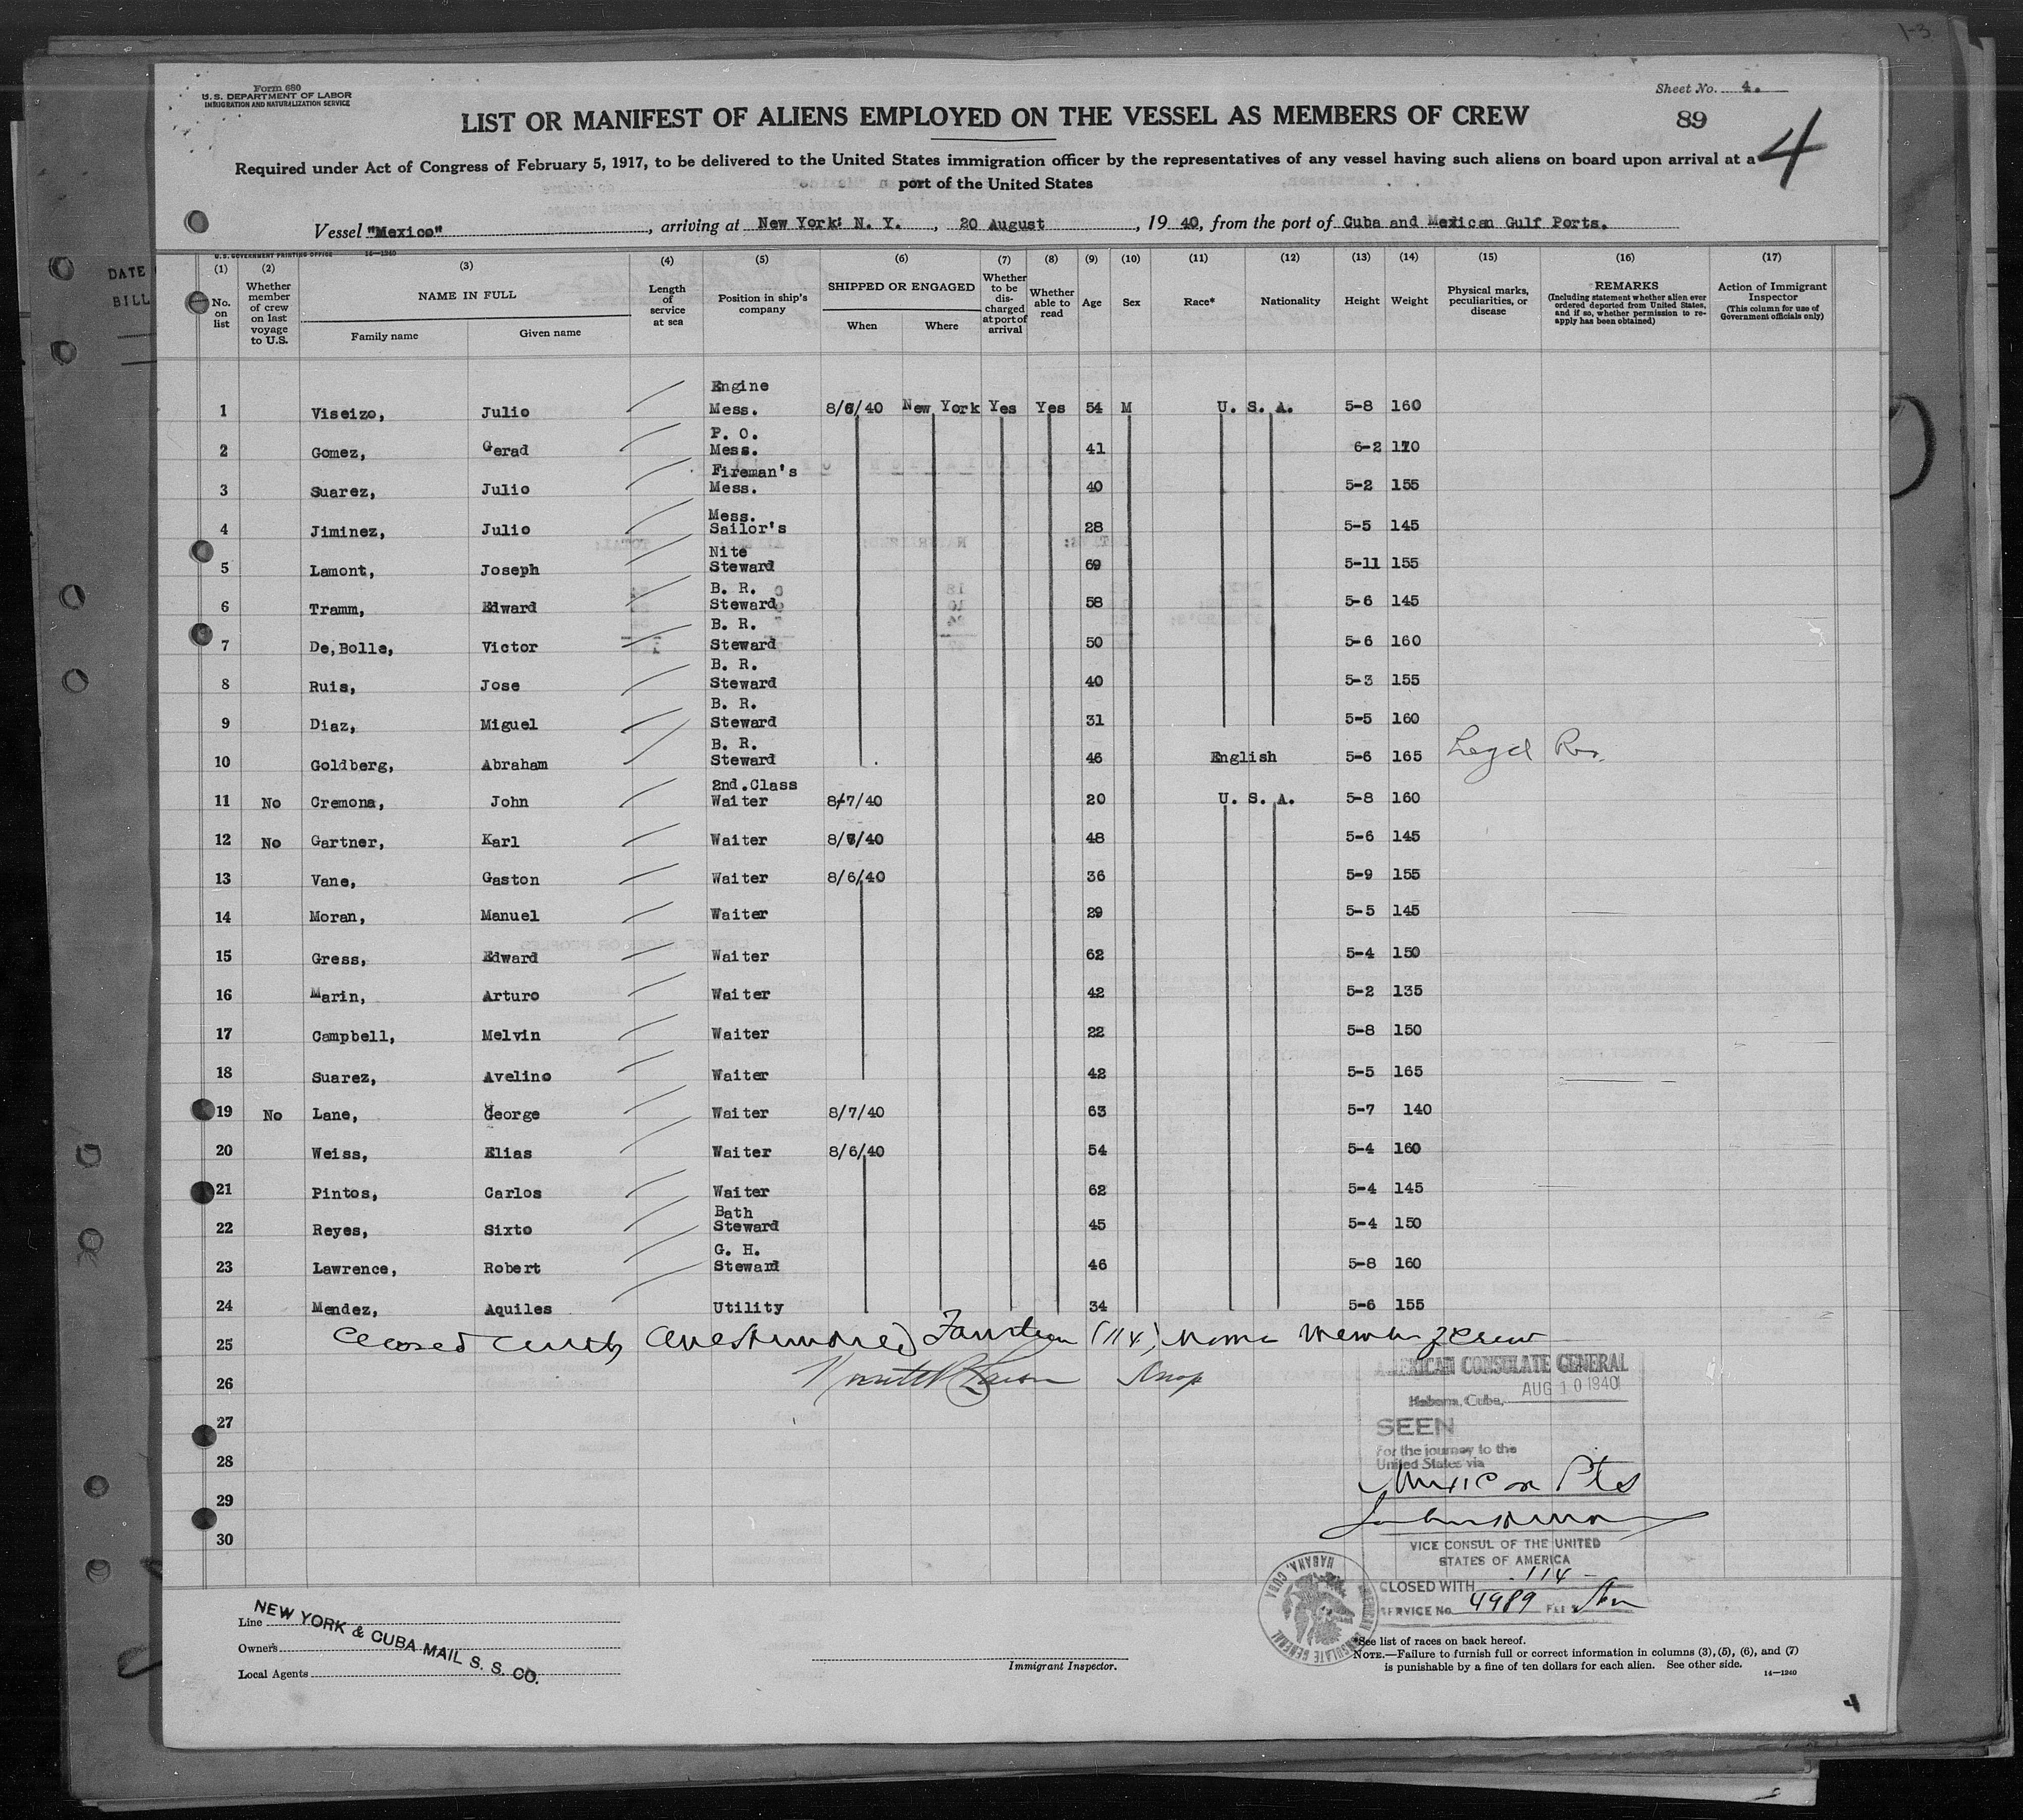 1-3
Form 680
U. S. DEPARTMENT OF LABOR
IMMIGRATION AND NATURALIZATION SERVICE
Sheet No. 4.
LIST OR MANIFEST OF ALIENS EMPLOYED ON THE VESSEL AS MEMBERS OF CREW
89
4
Required under Act of Congress of February 5, 1917, to be delivered to the United States immigration officer by the representatives of any vessel having such aliens on board upon arrival at a
port of the United States
Vessel "Mexico", arriving at New York: N. Y., 20 August, 1940, from the port of Cuba and Mexican Gulf Ports.
DATE
BILL
U. S. GOVERNMENT PRINTING OFFICE 14—1240
(1) (2) (3) (4) (5) (6) (7) (8) (9) (10) (11) (12) (13) (14) (15) (16) (17)
No. on list
Whether member of crew on last voyage to U.S.
NAME IN FULL
Family name Given name
Length of service at sea
Position in ship's company
SHIPPED OR ENGAGED
When Where
Whether to be discharged at port of arrival
Whether able to read
Age Sex Race* Nationality Height Weight
Physical marks, peculiarities, or disease
REMARKS
(Including statement whether alien ever ordered deported from United States, and if so, whether permission to re-apply has been obtained)
Action of Immigrant Inspector
(This column for use of Government officials only)
1 Viseizo, Julio Engine Mess. 8/6/40 New York Yes Yes 54 M U. S. A. 5-8 160
2 Gomez, Gerad P. O. Mess. 41 6-2 170
3 Suarez, Julio Fireman's Mess. 40 5-2 155
4 Jiminez, Julio Mess. Sailor's 28 5-5 145
5 Lamont, Joseph Nite Steward 69 5-11 155
6 Tramm, Edward B. R. Steward 58 5-6 145
7 De Bolle, Victor B. R. Steward 50 5-6 160
8 Ruis, Jose B. R. Steward 40 5-3 155
9 Diaz, Miguel B. R. Steward 31 5-5 160
10 Goldberg, Abraham B. R. Steward 46 English 5-6 165 Legal Res.
11 No Cremona, John 2nd.Class Waiter 8/7/40 20 U. S. A. 5-8 160
12 No Gartner, Karl Waiter 8/7/40 48 5-6 145
13 Vane, Gaston Waiter 8/6/40 36 5-9 155
14 Moran, Manuel Waiter 29 5-5 145
15 Gress, Edward Waiter 62 5-4 150
16 Marin, Arturo Waiter 42 5-2 135
17 Campbell, Melvin Waiter 22 5-8 150
18 Suarez, Avelino Waiter 42 5-5 165
19 No Lane, George Waiter 8/7/40 63 5-7 140
20 Weiss, Elias Waiter 8/6/40 54 5-4 160
21 Pintos, Carlos Waiter 62 5-4 145
22 Reyes, Sixto Bath Steward 45 5-4 150
23 Lawrence, Robert G. H. Steward 46 5-8 160
24 Mendez, Aquiles Utility 34 5-6 155
25 Closed with One Hundred Fourteen (114) crew
26
27
28
29
30
AMERICAN CONSULATE GENERAL
AUG 10 1940
Habana, Cuba,
SEEN
For the journey to the
United States via
Mexican Pts
VICE CONSUL OF THE UNITED
STATES OF AMERICA
CLOSED WITH 114
SERVICE No. 4989 FEE
AMERICAN CONSULATE GENERAL HABANA, CUBA
Line
Owners
Local Agents
NEW YORK & CUBA MAIL S. S. CO.
Immigrant Inspector.
*See list of races on back hereof.
NOTE.—Failure to furnish full or correct information in columns (3), (5), (6), and (7)
is punishable by a fine of ten dollars for each alien. See other side.
14—1240
4